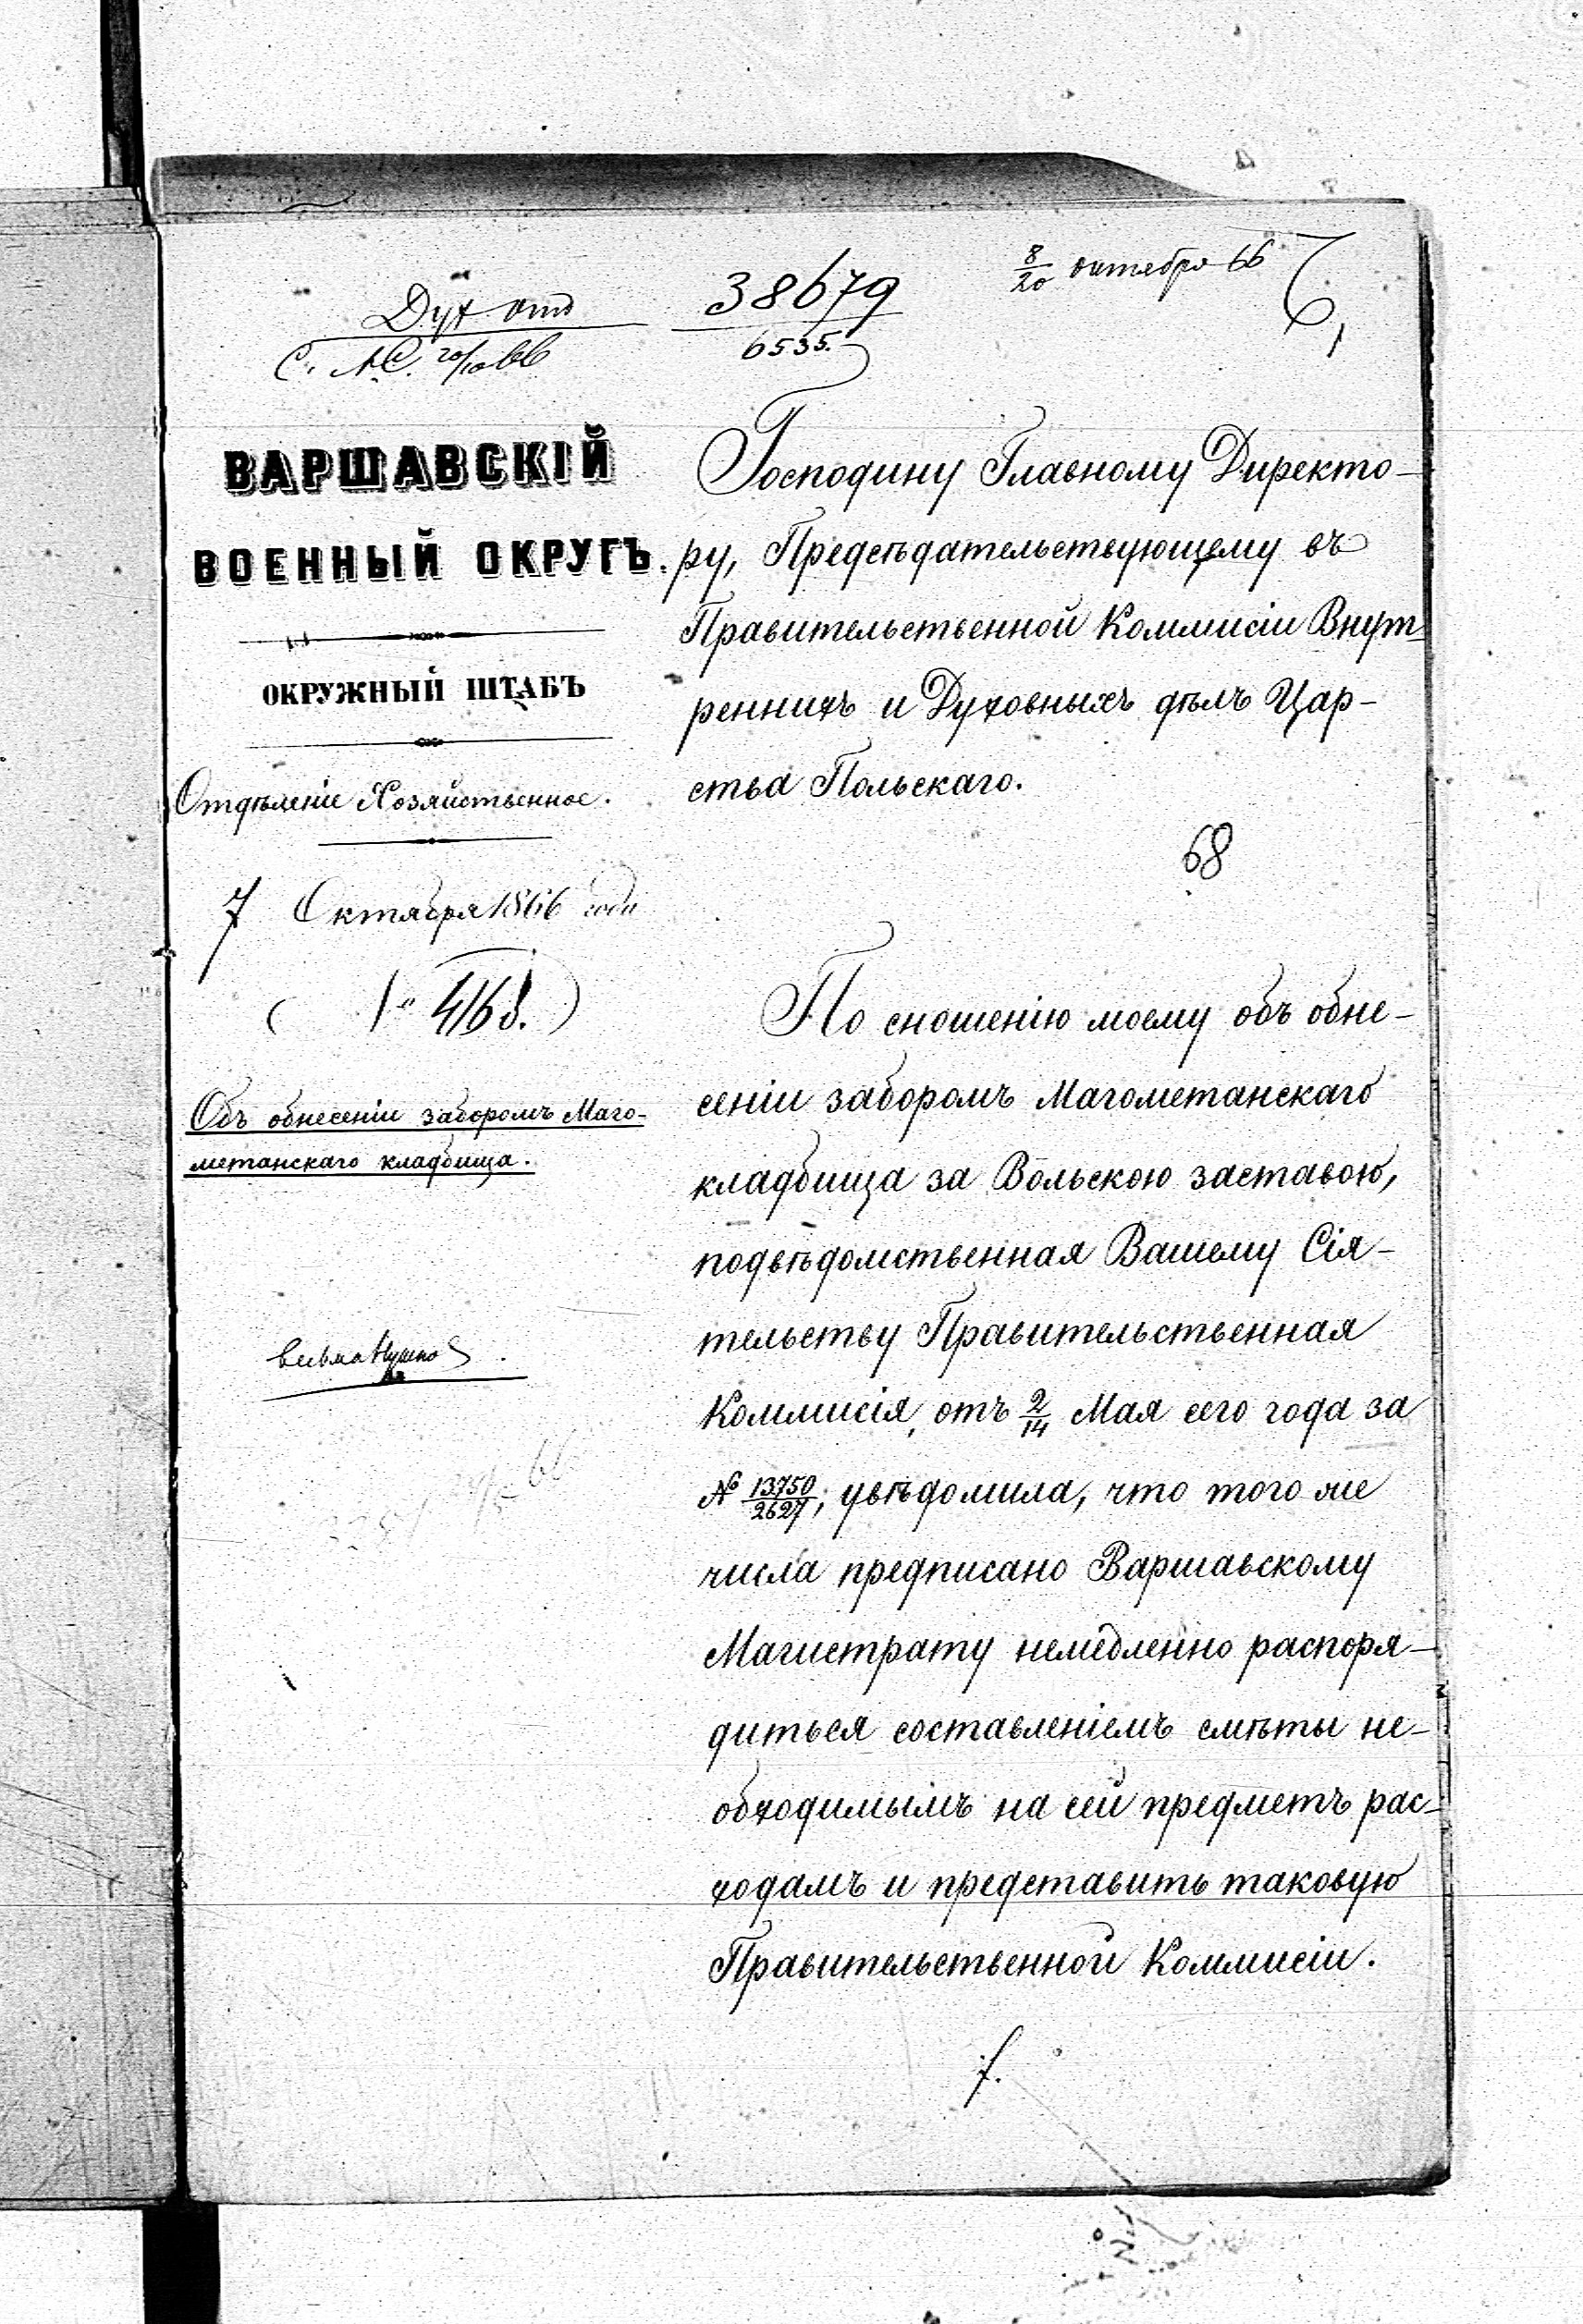 8/20 октября 66
Дух отд
38679
6535.
ВАРШАВСКІЙ
ВОЕННЫЙ ОКРУГЪ.
ОКРУЖНЫЙ ШТАБЪ
Отдѣленіе Хозяйственное.
7 Октября 1866 года
Объ обнесеніи заборомъ Маго-
метанскаго кладбища.
Господину Главному Директо-
ру, Предсѣдательствующему въ
Правительственной Коммисіи Внут
реннихъ и Духовныхъ дѣлъ Цар-
ства Польскаго.
68
По сношенію моему объ обне-
сеніи заборомъ Магометанскаго
кладбища за Вольскою заставою,
подвѣдомственная Вашему Сія-
тельству Правительственная
Коммисія, отъ 2/14 Мая сего года за
№ 13750/2627, увѣдомила, что того же
числа предписано Варшавскому
Магистрату немедленно распоря-
диться составленіемъ смѣты не-
обходимымъ на сей предметъ рас-
ходамъ и представить таковую
Правительственной Коммисіи.